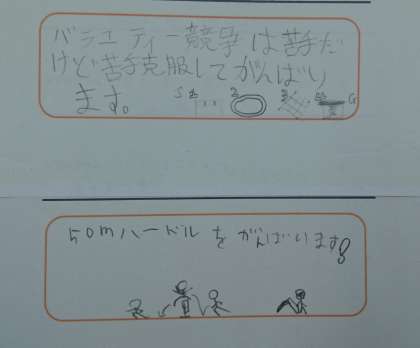 バラエティー競争は苦手だ
けど苦手克服してがんばり
ます。
S 1 2 3 4 G
50mハードルをがんばいます!